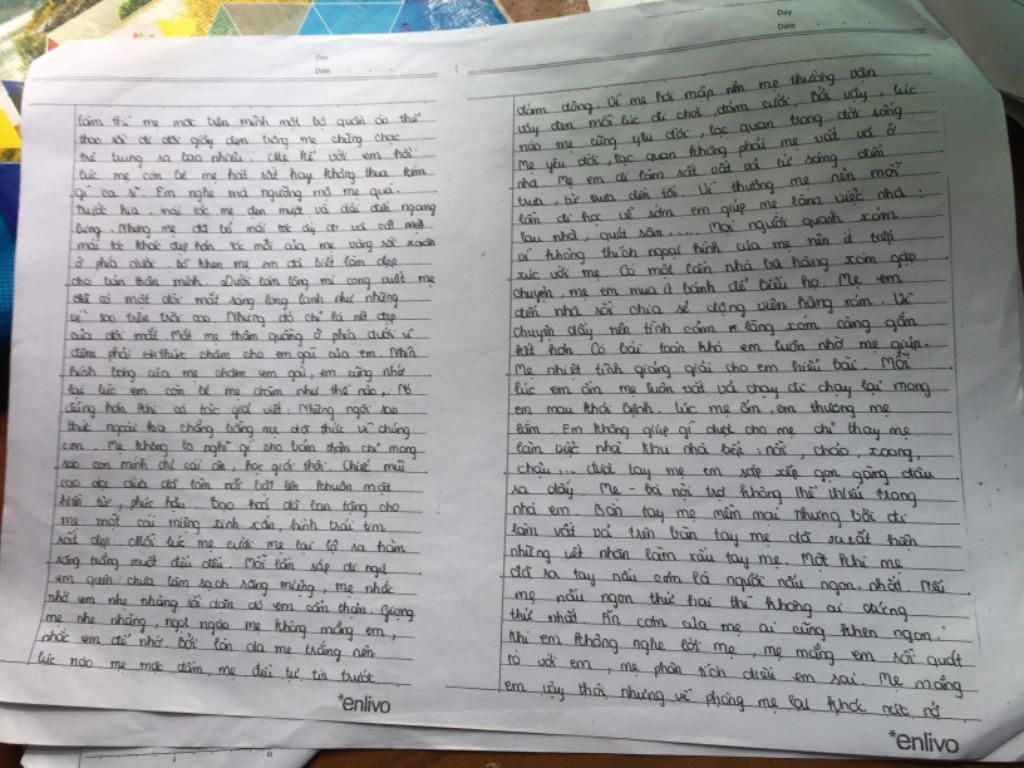 Day
Date
làm thì mẹ mặc trên mình một bộ quần áo thể
thao rồi đi đôi giày đen trông mẹ chững chạc
trẻ trung ra bao nhiêu. Mẹ kể với em hồi
lúc mẹ còn bé mẹ hát rất hay không thua kém
gì ca sĩ. Em nghe mà ngưỡng mộ mẹ quá.
Trước kia, mái tóc mẹ đen mượt và dài đến ngang
lưng. Nhưng mẹ đã bỏ mái tóc ấy đi và cắt
mái tóc khác đẹp hơn. tóc mới của mẹ vàng rồi xoăn
ở phía dưới. bố khen mẹ em đã biết làm đẹp
cho bản thân mình. Dưới làn lông mi cong vuốt mẹ
có một đôi mắt sáng long lanh như những
vì sao trên trời cao. Nhưng đó chỉ là nét đẹp
của đôi mắt. Mắt mẹ thâm quầng ở phía dưới vì
đêm phải thức chăm cho em gái của em. Nhìn
hình bóng của mẹ chăm em gái, em cũng nhớ
lại lúc em còn bé mẹ chăm như thế nào,. Nó
đúng hơn khi có tác giả viết. Những ngôi sao
thức ngoài kia chẳng bằng mẹ đã thức vì chúng
con. Mẹ không lo nghĩ gì cho bản thân chỉ mong
sao con mình chỉ cái ăn, học giỏi thôi. Chiếc mũi
cao dọc dừa đã làm nổi bật lên khuôn mặt
hiền từ, phúc hậu. Tạo hoá đã ban tặng cho
mẹ một cái miệng xinh xắn, hình trái tim
rất đẹp. Mỗi lúc mẹ cười mẹ lại lộ ra hàm
răng trắng muốt đều đều. Mỗi lần sắp đi ngủ
em quên chưa làm sạch răng miệng, mẹ nhắc
nhở em nhẹ nhàng rồi dặn dò em cẩn thận. Giọng
mẹ nhẹ nhàng, ngọt ngào mẹ không mắng em,
nhắc em để nhớ. Bởi làn da mẹ trắng nên
lúc nào mẹ mặc đầm, mẹ đều tự tin trước
*enlivo
Day
Date
đám đông. Vì mẹ hơi mập nên mẹ thường vận
váy đen mỗi lúc đi chơi, đám cưới. Bởi vậy, lúc
nào mẹ cũng yêu đời, lạc quan trong đời sống
Mẹ yêu đời, lạc quan không phải mẹ vất vơ ở
nhà. Mẹ em đi làm rất vất vả từ sáng đến
trưa, từ trưa đến tối. Vì thương mẹ nên mỗi
lần đi học về sớm em giúp mẹ làm việc nhà:
lau nhà, quét sân.... Mọi người quanh xóm
ai không thích ngoại hình của mẹ nên ít tiếp
xúc với mẹ. Có một lần nhà bà hàng xóm gặp
chuyện, mẹ em mua ít bánh để biếu họ. Mẹ em
đến nhà rồi chia sẻ, động viên hàng xóm. Vì
chuyện đấy nên tình cảm làng xóm càng gắn
kết hơn Có bài toán khó em luôn nhờ mẹ giúp.
Mẹ nhiệt tình giảng giải cho em hiểu bài. Mỗi
lúc em ốm mẹ luôn vất vả chạy đi chạy lại mong
em mau khỏi bệnh. Lúc mẹ ốm, em thương mẹ
lắm. Em không giúp gì được cho mẹ chỉ thay mẹ
làm việc nhà. Khu nhà bếp: nồi, chảo, xoong,
chậu... được tay mẹ em sắp xếp gọn gàng đâu
ra đấy. Mẹ - bà nội trợ không thể thiếu trong
nhà em. Bàn tay mẹ mềm mại nhưng bởi đi
làm vất vả trên bàn tay mẹ đã xuất hiện
những vết nhăn làm xấu tay mẹ. Một khi mẹ
đã ra tay nấu cơm là người nấu ngon nhất. Nếu
mẹ nấu ngon thứ hai thì không ai đứng
thứ nhất. Ăn cơm của mẹ ai cũng khen ngon.
Khi em không nghe lời mẹ, mẹ mắng em rồi quát
to với em, mẹ phân tích điều em sai. Mẹ mắng
em vậy thôi, nhưng về phòng mẹ lại khóc nức nở
*enlivo